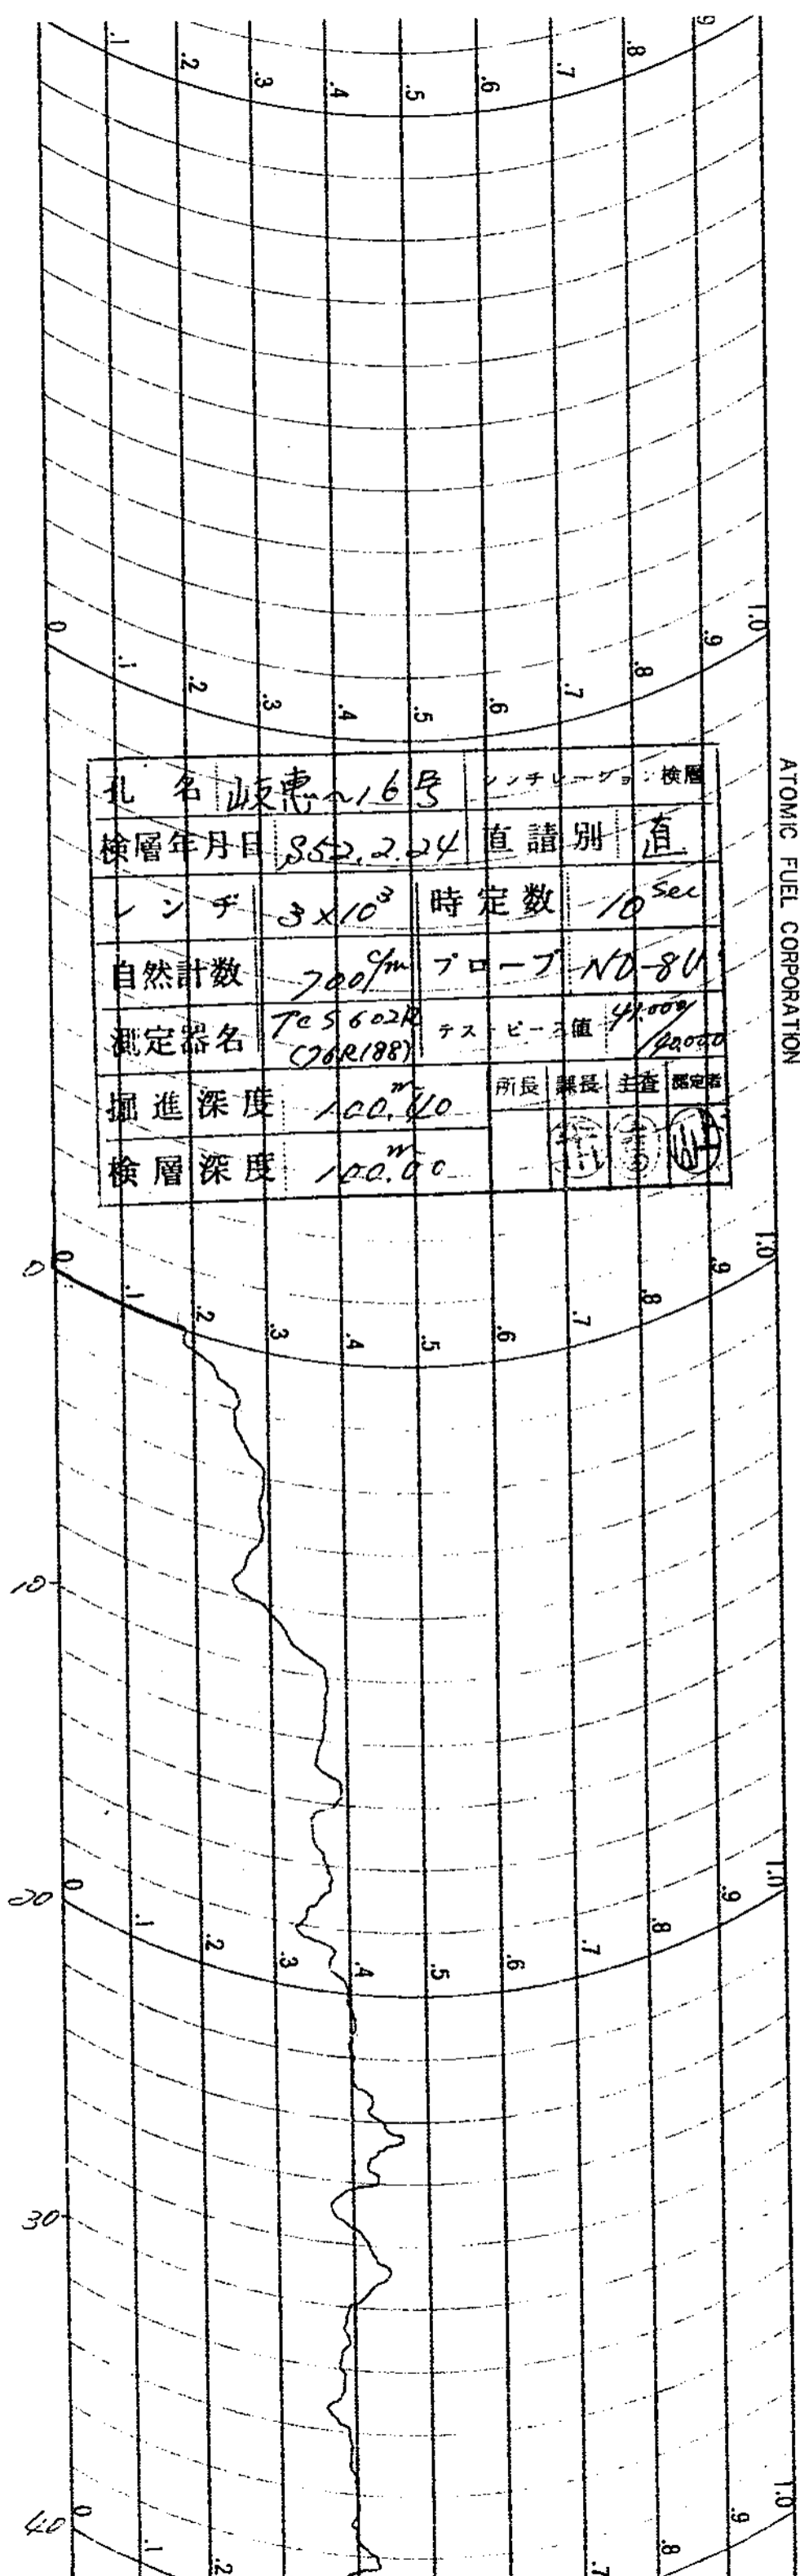 .1 .2 .3 .4 .5 .6 .7 .8 .9
0 .1 .2 .3 .4 .5 .6 .7 .8 .9 1.0
ATOMIC FUEL CORPORATION
孔名 岐恵〜16号 シンチレーション検層
検層年月日 S52.2.24 直請別 直
レンヂ 3×10³ 時定数 10 sec
自然計数 700 c/m プローブ ND-8U
測定器名 TCS602R (76R188) テストピース値 41.000/40.000
掘進深度 100.40 m 所長 課長 主査 測定者
検層深度 100.00 m
0
0 .1 .2 .3 .4 .5 .6 .7 .8 .9 1.0
10
20
0 .1 .2 .3 .4 .5 .6 .7 .8 .9 1.0
30
40
0 .1 .2 .7 .8 .9 1.0